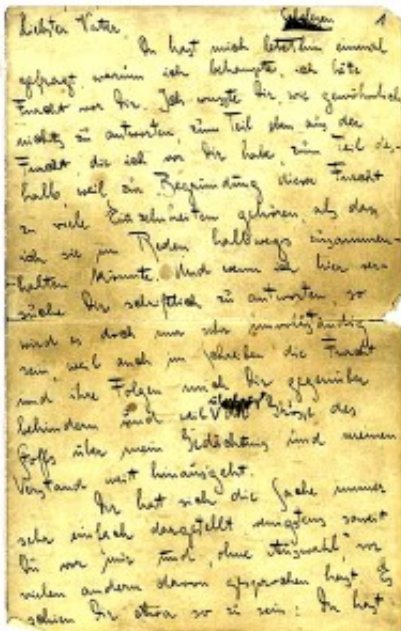 Schelesen 1
Liebster Vater,
Du hast mich letzthin einmal
gefragt, warum ich behaupte, ich hätte
Furcht vor Dir. Ich wusste Dir, wie gewöhnlich,
nichts zu antworten, zum Teil eben aus der
Furcht die ich vor Dir habe, zum Teil des-
halb, weil zur Begründung dieser Furcht
zu viele Einzelnheiten gehören, als dass
ich sie im Reden halbwegs zusammen-
halten könnte. Und wenn ich hier ver-
suche Dir schriftlich zu antworten, so
wird es doch nur sehr unvollständig
sein, weil auch im Schreiben die Furcht
und ihre Folgen mich Dir gegenüber
behindern und weil überhaupt die Grösse des
Stoffs über mein Gedächtnis und meinen
Verstand weit hinausgeht.
Dir hat sich die Sache immer
sehr einfach dargestellt, wenigstens soweit
Du vor mir und, ohne Auswahl, vor
vielen andern davon gesprochen hast. Es
schien Dir etwa so zu sein: Du hast